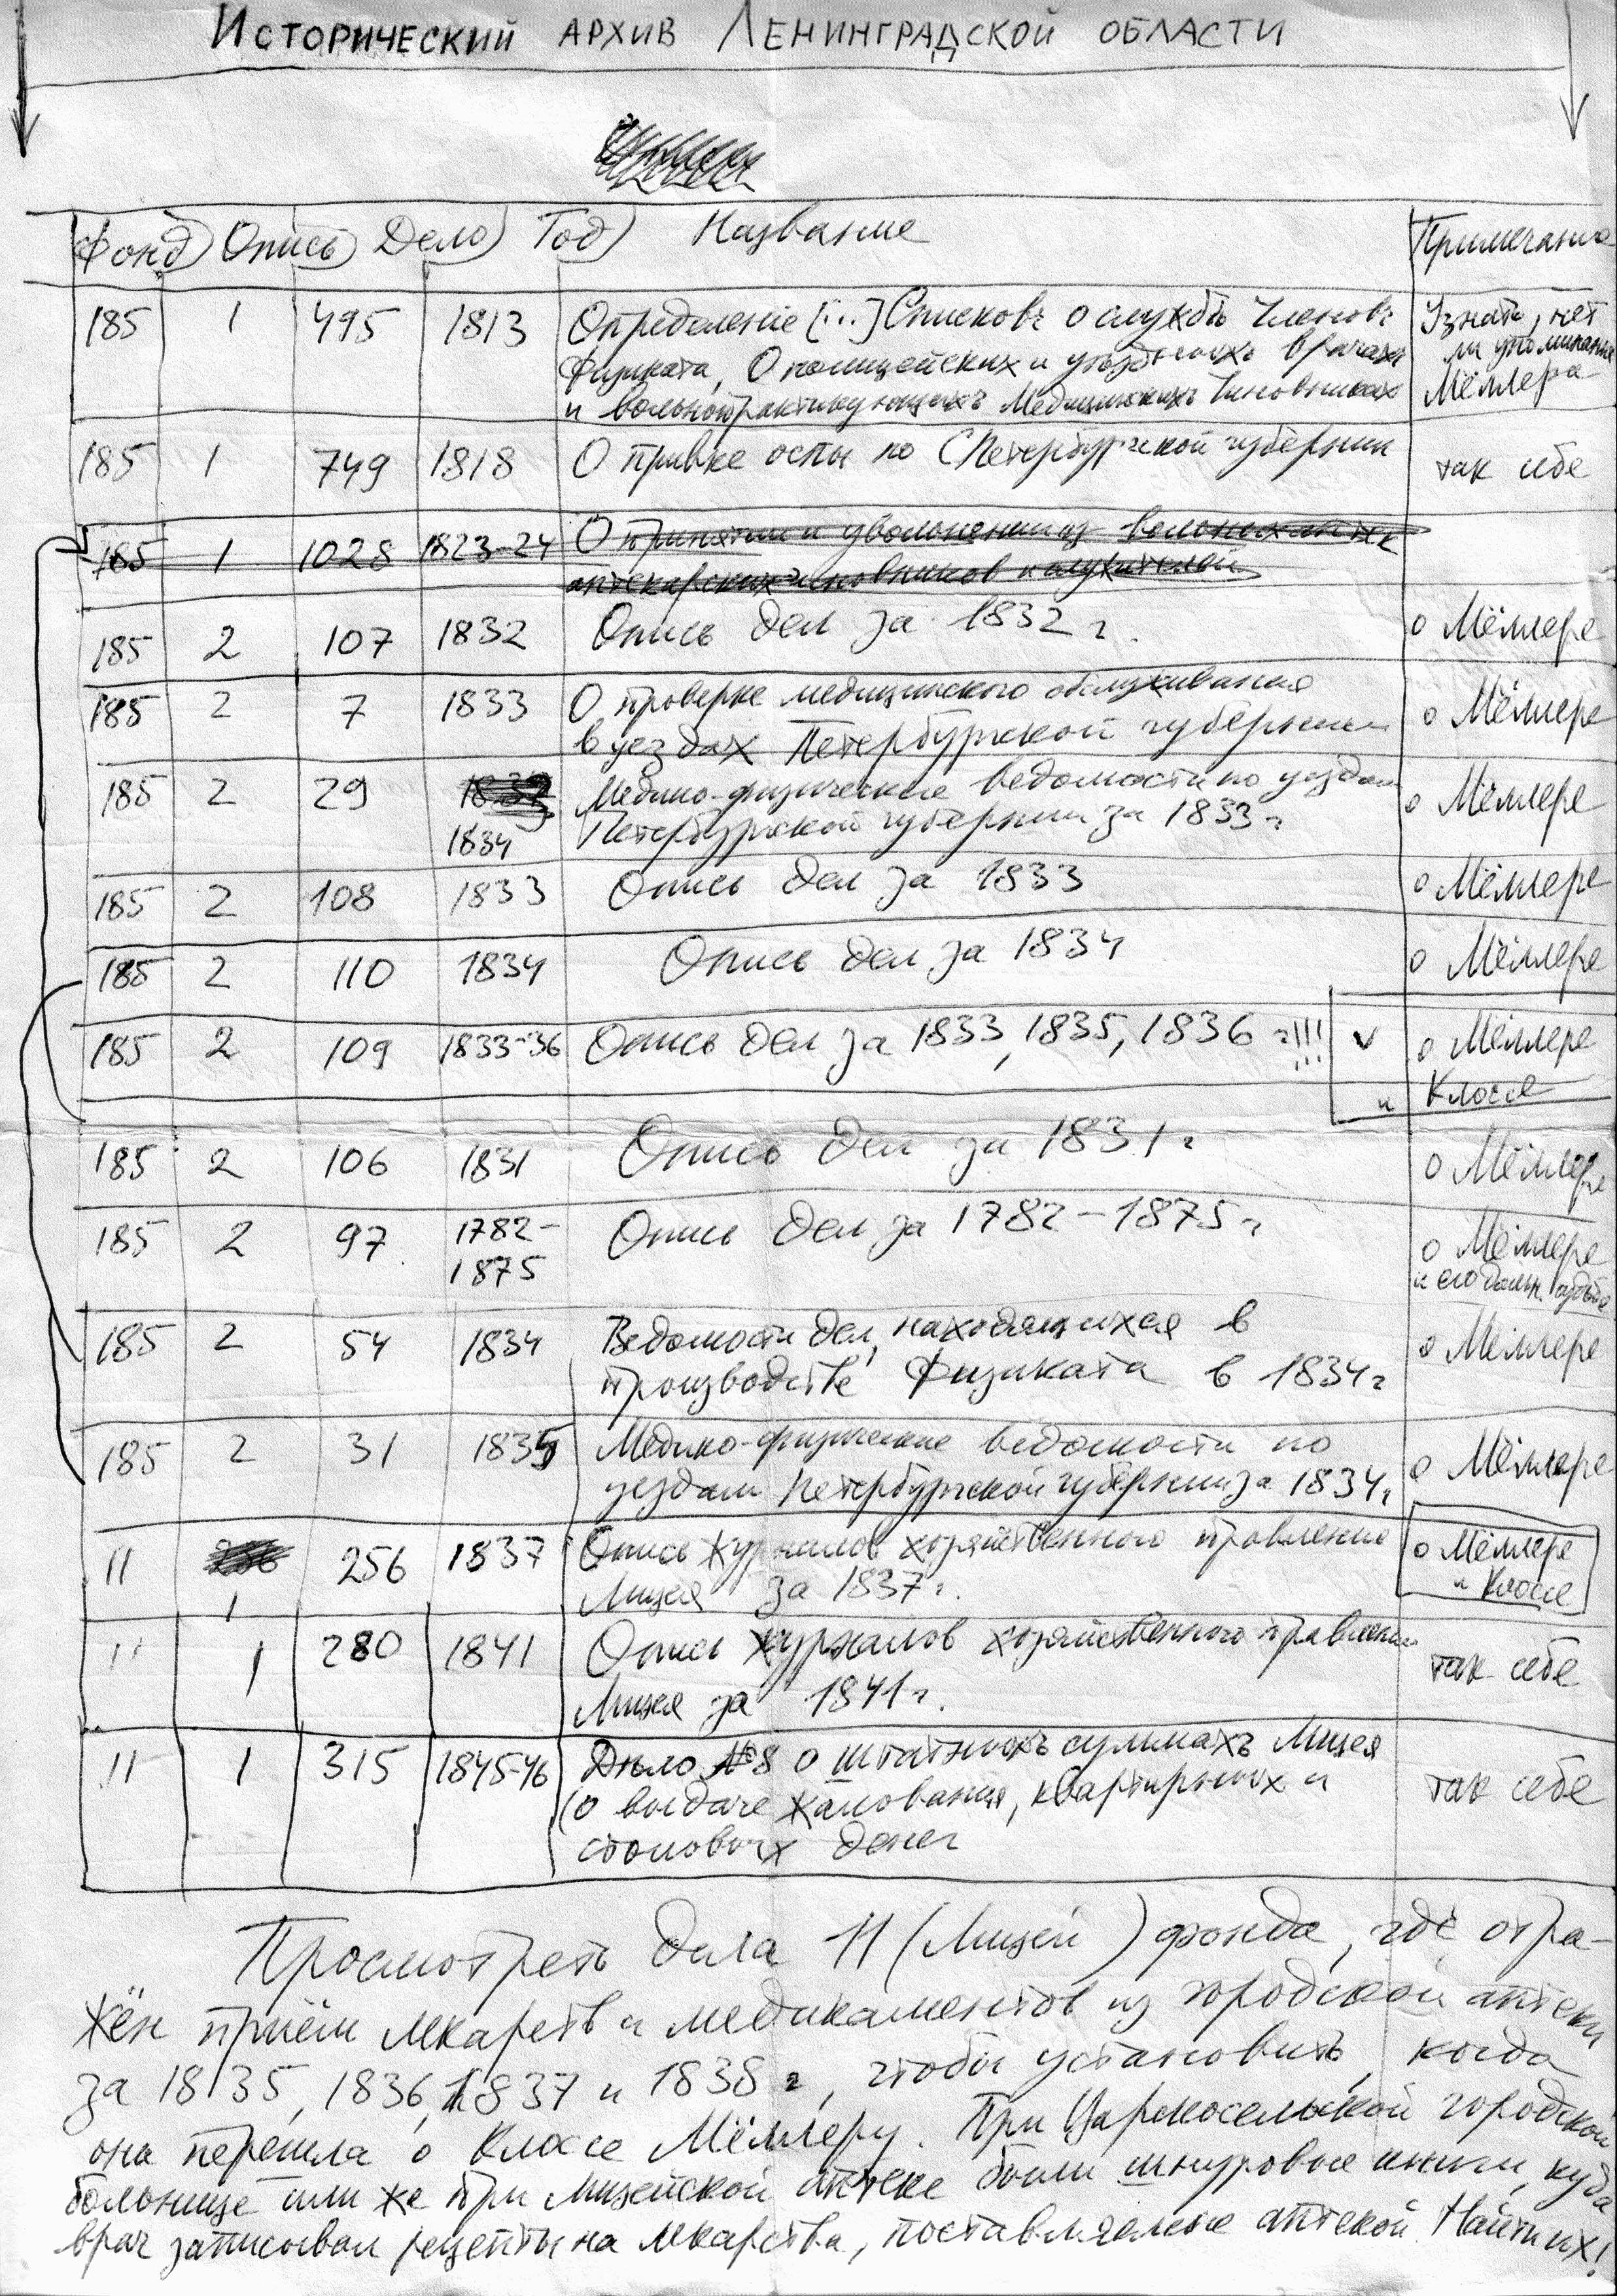 ИСТОРИЧЕСКИЙ АРХИВ ЛЕНИНГРАДСКОЙ ОБЛАСТИ
Фонд Опись Дело Год Название Примечание
185 1 495 1813 Определенiе [...] Списковъ о службѣ Членовъ Узнать, нет
Физиката, О полицейских и уѣздныхъ врачахъ ли упоминания
и вольнопрактикующихъ Медицинскихъ Чиновниках Мёллера
185 1 749 1818 О привке оспы по СПетербургской губернии так себе
185 1 1028 1823-24 О принятии и увольнении из вольных аптек
аптекарских чиновников и служителей
185 2 107 1832 Опись дел за 1832 г. о Мёллере
185 2 7 1833 О проверке медицинского обслуживания о Мёллере
в уездах Петербургской губернии
185 2 29 1834 Медико-физические ведомости по уездам о Мёллере
Петербургской губернии за 1833 г
185 2 108 1833 Опись дел за 1833 о Мёллере
185 2 110 1834 Опись дел за 1834 о Мёллере
185 2 109 1833-36 Опись дел за 1833, 1835, 1836 г!!! v о Мёллере
и Клоссе
185 2 106 1831 Опись дел за 1831 г о Мёллере
185 2 97 1782- Опись дел за 1782-1875 г о Мёллере
1875 и его дальн. судьбе
185 2 54 1834 Ведомости дел, находящихся в о Мёллере
производстве Физиката в 1834 г
185 2 31 1835 Медико-физические ведомости по о Мёллере
уездам Петербургской губернии за 1834 г
11 1 256 1837 Опись журналов хозяйственного правления о Мёллере
Лицея за 1837 г. и Клоссе
11 1 280 1841 Опись журналов хозяйственного правления так себе
Лицея за 1841 г.
11 1 315 1845-46 Дѣло №8 о штатныхъ суммахъ Лицея так себе
(о выдаче жалования, квартирных и
столовых денег
Просмотреть дела 11 (Лицей) фонда, где отра-
жён приём лекарств и медикаментов из городской аптеки
за 1835, 1836, 1837 и 1838 г, чтобы установить, когда
она перешла о Клоссе Мёллеру. При Царскосельской городской
больнице или же при Лицейской аптеке были шнуровые книги, куда
врач записывал рецепты на лекарства, поставляемые аптекой. Найти их!